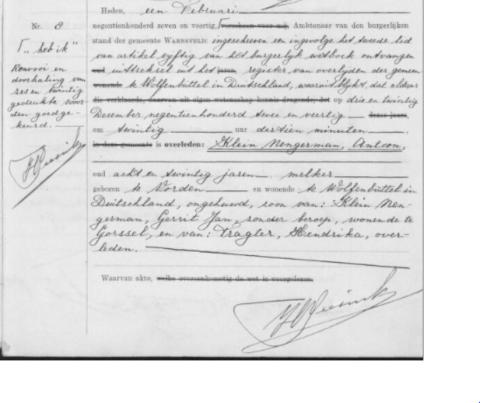 Nr. 8
Heden, een Februari
negentienhonderd zeven en veertig verscheen voor mij, Ambtenaar van den burgerlijken
„heb ik"
stand der gemeente WARNSVELD ingeschreven en ingevolge het tweede lid
Renvooi en
van artikel vijftig van het burgerlijk wetboek ontvangen
doorhaling van
een uittreksel uit het register, van overlijden der gemeen
zes en twintig
te Wolfenbüttel in Duitschland, waaruit blijkt, dat aldaar
gedrukte woor
die verklaarde, daarvan uit eigen wetenschap kennis dragende, dat op drie en twintig
den goedge-
December negentienhonderd twee en veertig dezes jaars,
keurd.
om twintig uur dertien minuten
in deze gemeente is overleden: Klein Nengerman, Antoon,
oud acht en twintig jaren, melker
geboren te Vorden en wonende te Wolfenbüttel in
Duitschland, ongehuwd, zoon van: Klein Nen-
german, Gerrit Jan, zonder beroep, wonende te
Gorssel, en van: Tragter, Hendrika, over-
leden.
Waarvan akte, welke overeenkomstig de wet is voorgelezen.